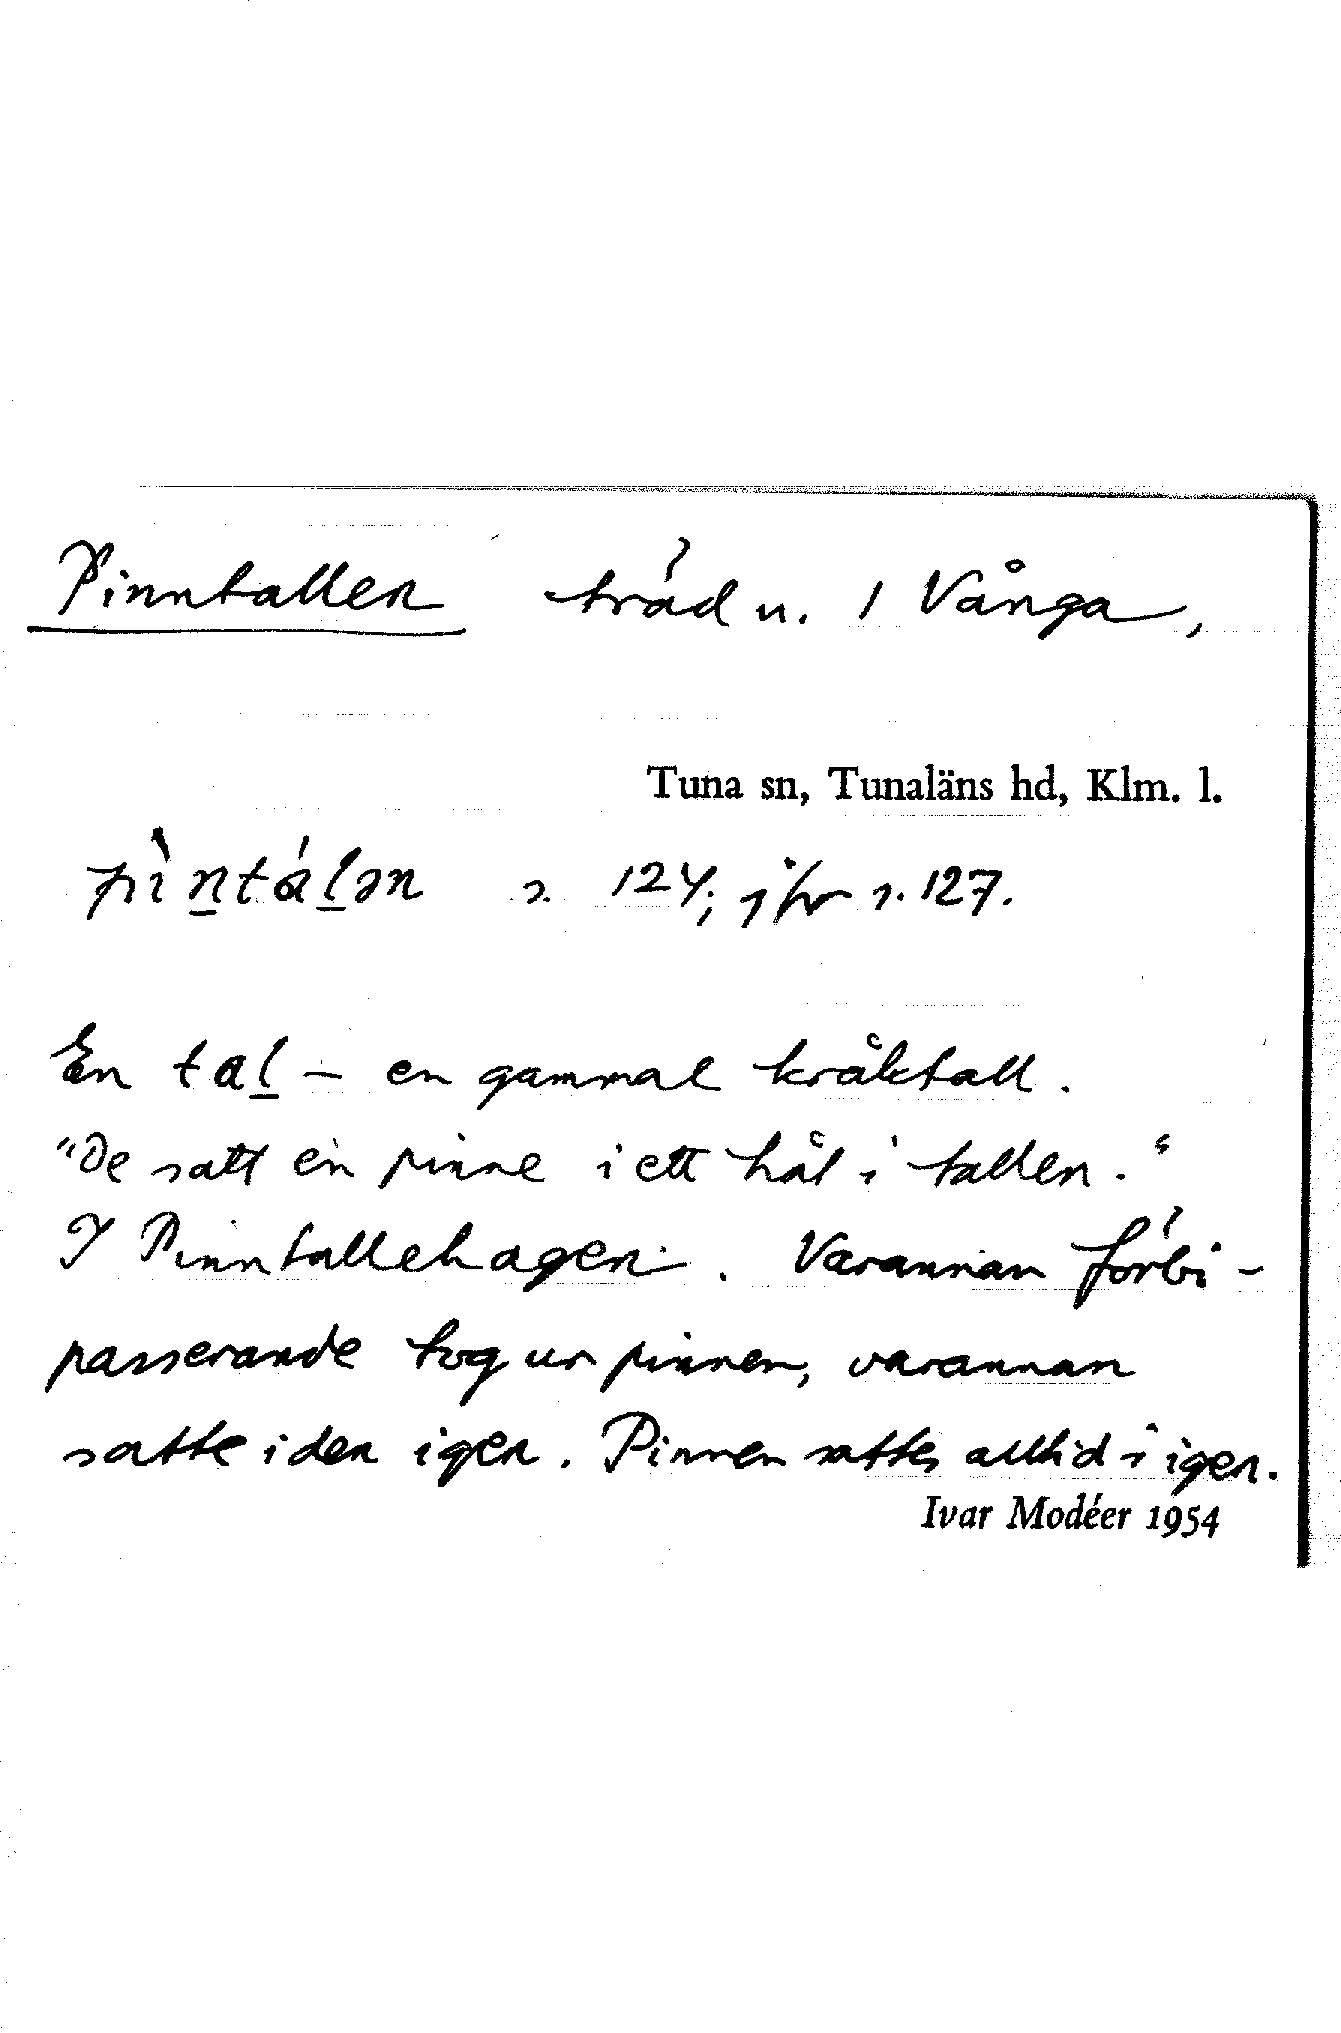 Pinntallen träd u. 1 Vånga,
Tuna sn, Tunaläns hd, Klm. l.
pìn̲tál̲ən s. 124; jfr s. 127.
En tal̲ – en gammal kråktall.
"De satt en pinne i ett hål i tallen."
I Pinntallehagen. Varannan förbi-
passerande tog ur pinnen, varannan
satte i den igen. Pinnen sattes alltid i igen.
Ivar Modéer 1954